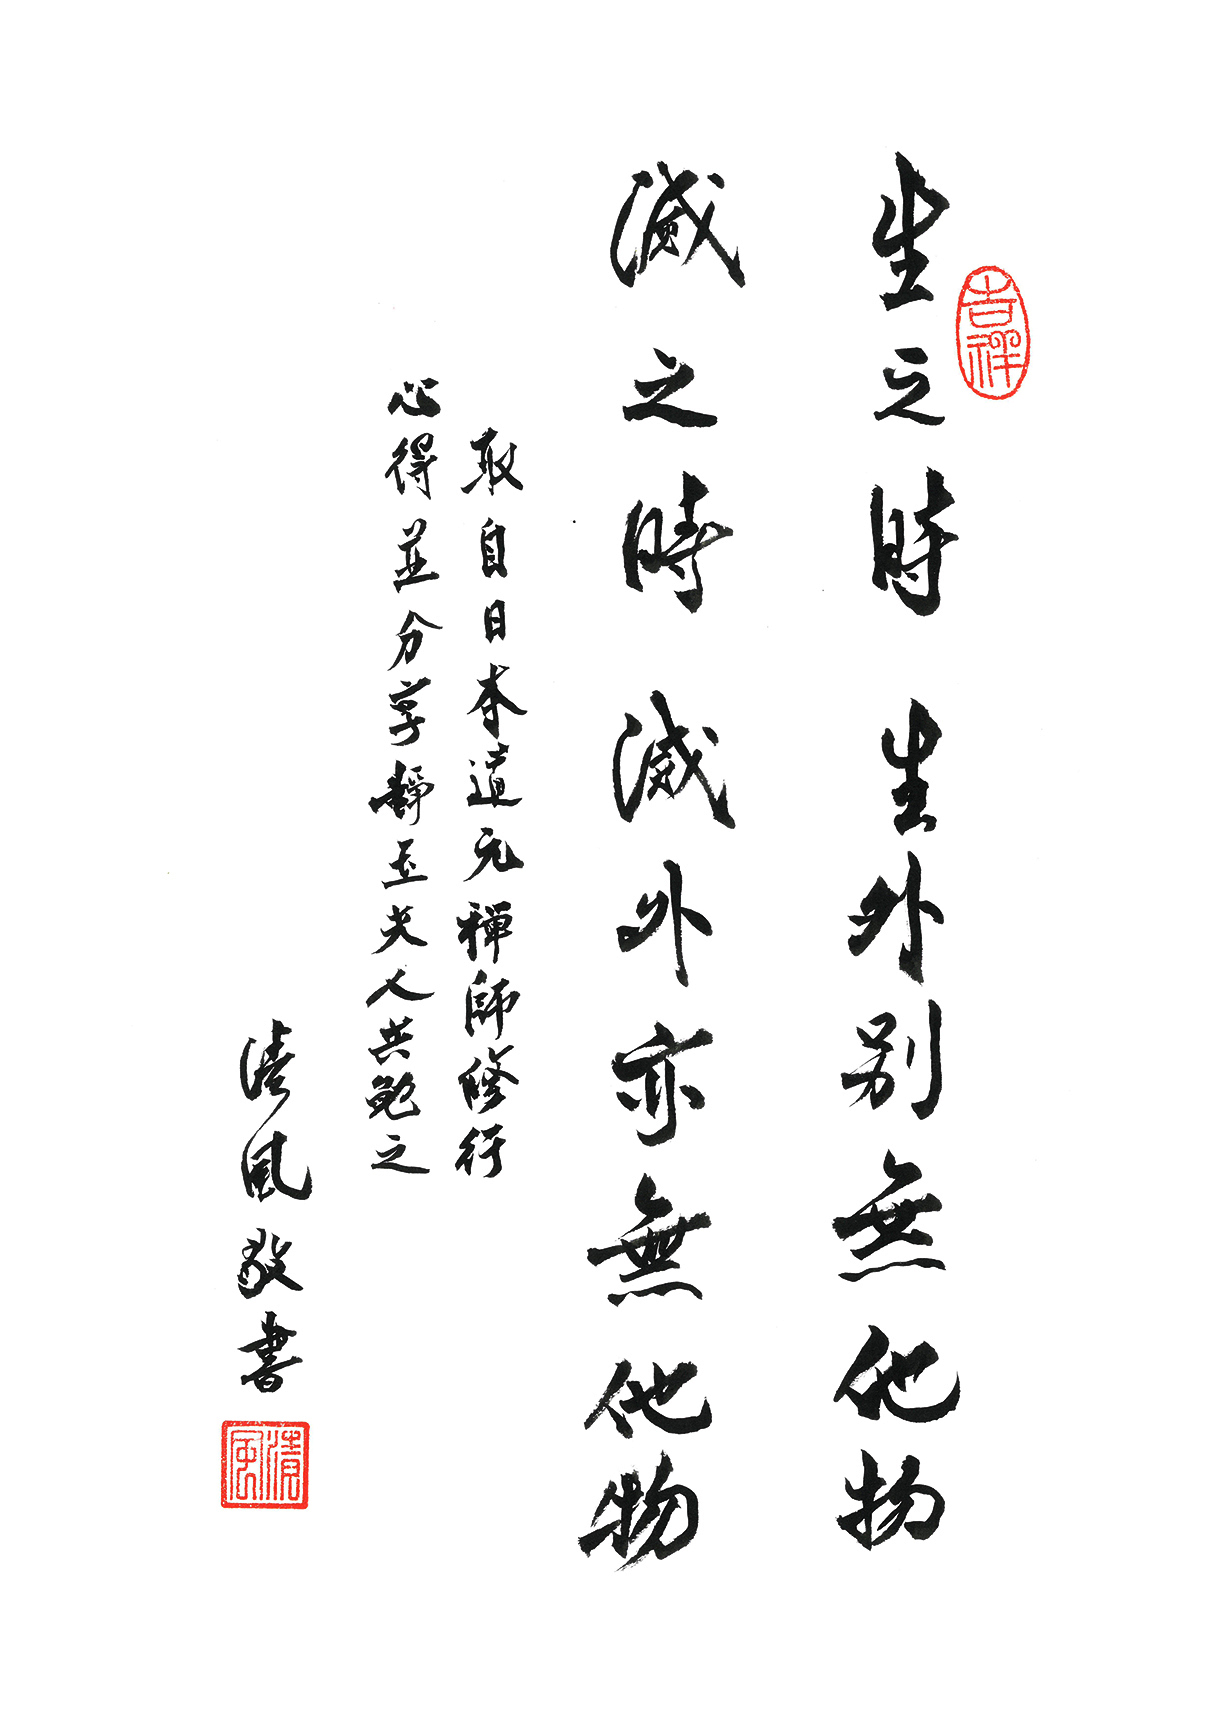 生之時 生外別無他物
滅之時 滅外亦無他物
取自日本道元禪師修行
心得並分享靜玉夫人共勉之
清風敬書
吉祥
清風